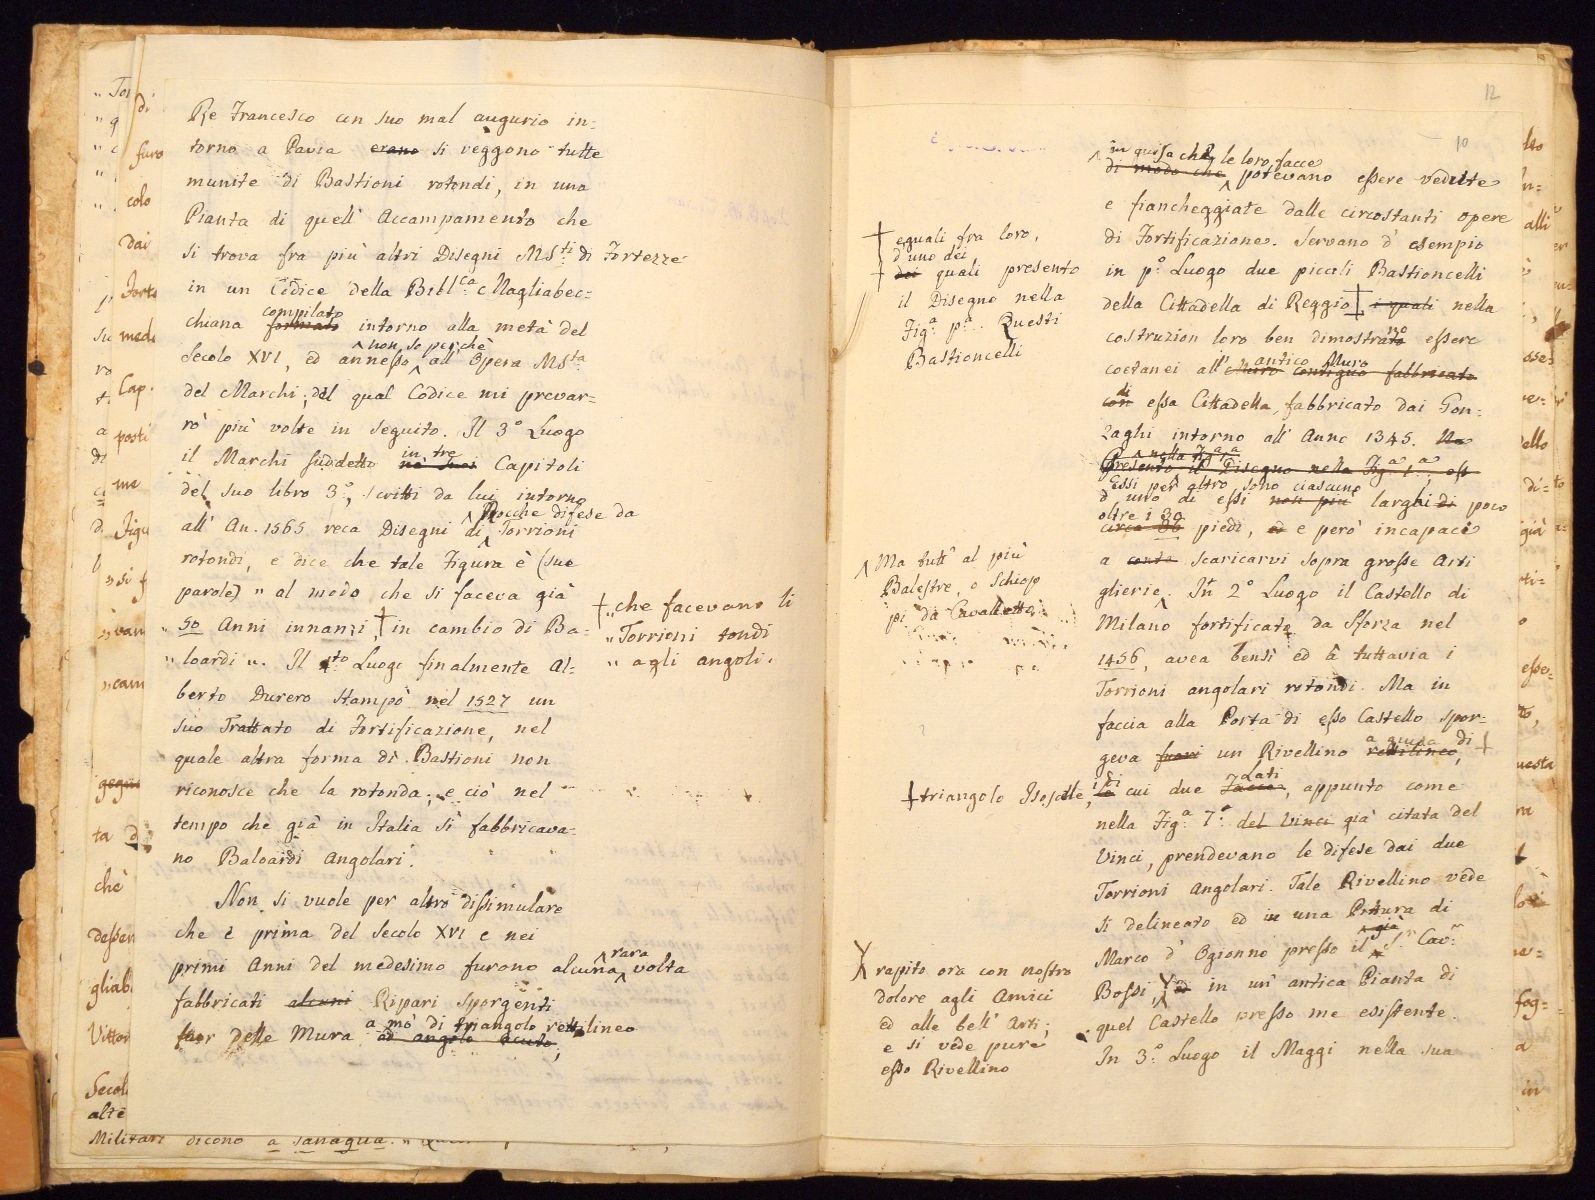 Re Francesco con suo mal augurio in=
torno a Pavia erano si veggono tutte
munite di Bastioni rotondi, in una
Pianta di quell' Accampamento che
si trova fra più altri Disegni MSti. di Fortezze
in un Codice della Bibl.ca Magliabec=
compilato
chiana formato intorno alla metà del
non so perchè
Secolo XVI, ed annesso all' Opera MSta
del Marchi; del qual Codice mi prevar=
rò più volte in seguito. Il 3° Luogo
in tre
il Marchi suddetto ne' suoi Capitoli
del suo libro 3°, scritti da lui intorno
Rocche difese da
all' An. 1565 reca Disegni di Torrioni
rotondi, e dice che tale Figura è (sue
parole) „ al modo che si faceva già
„ 50 Anni innanzi, † in cambio di Ba=
„ loardi „. Il 4to Luogo finalmente Al=
berto Durero stampò nel 1527 un
suo Trattato di Fortificazione, nel
quale altra forma di Bastioni non
riconosce che la rotonda; e ciò nel
tempo che già in Italia si fabbricava=
no Baloardi Angolari.
Non si vuole per altro dissimulare
che e prima del Secolo XVI e nei
rara
primi Anni del medesimo furono alcuna volta
fabbricati alcuni Ripari sporgenti
a mò di triangolo rettilineo
fuor delle Mura ad angolo acuto,
† „ che facevano li
„ Torrioni tondi
„ agli angoli.
Militari dicono a sanaqua. „
12
10
in guisa che le loro facce
di modo che potevano essere vedute
e fiancheggiate dalle circostanti opere
di Fortificazione. Servano d' esempio
in p° Luogo due piccoli Bastioncelli
della Cittadella di Reggio † i quali nella
no
costruzion loro ben dimostrato essere
antico Muro
coetanei all' Muro contiguo fabbricato
di
con essa Cittadella, fabbricato dai Gon=
zaghi intorno all' Anno 1345. Ne
nella Fig.a 1.a
Presento il Disegno nella Fig.a 1.a, ess
Essi per altro sono ciascuno
d' uno di essi non più larghi di poco
oltre i 30
circa 30 piedi, ed e però incapaci
a conte scaricarvi sopra grosse Arti
glierie. In 2° Luogo il Castello di
Milano fortificato da Sforza nel
1456, avea bensì ed à tuttavia i
Torrioni angolari rotondi. Ma in
faccia alla Porta di esso Castello spor=
a guisa di
geva fuori un Rivellino rettilineo, †
i di Lati
le cui due Facce, appunto come
nella Fig.a 7.a del Vinci già citata del
Vinci, prendevano le difese dai due
Torrioni Angolari. Tale Rivellino vede
si delineato ed in una Pittura di
già
Marco d' Ogionno presso il S.r Cav.r
Bossi, ed in un' antica Pianta di
quel Castello presso me esistente.
In 3° Luogo il Maggi nella sua
† eguali fra loro,
d' uno dei
† dei quali presento
il Disegno nella
Fig.a p.a. Questi
Bastioncelli
Ma tutt' al più
Balestre, o Schiop
pi da Cavalletto
† triangolo Isoscele,
rapito ora con nostro
dolore agli Amici
ed alle bell' Arti;
e si vede pure
esso Rivellino